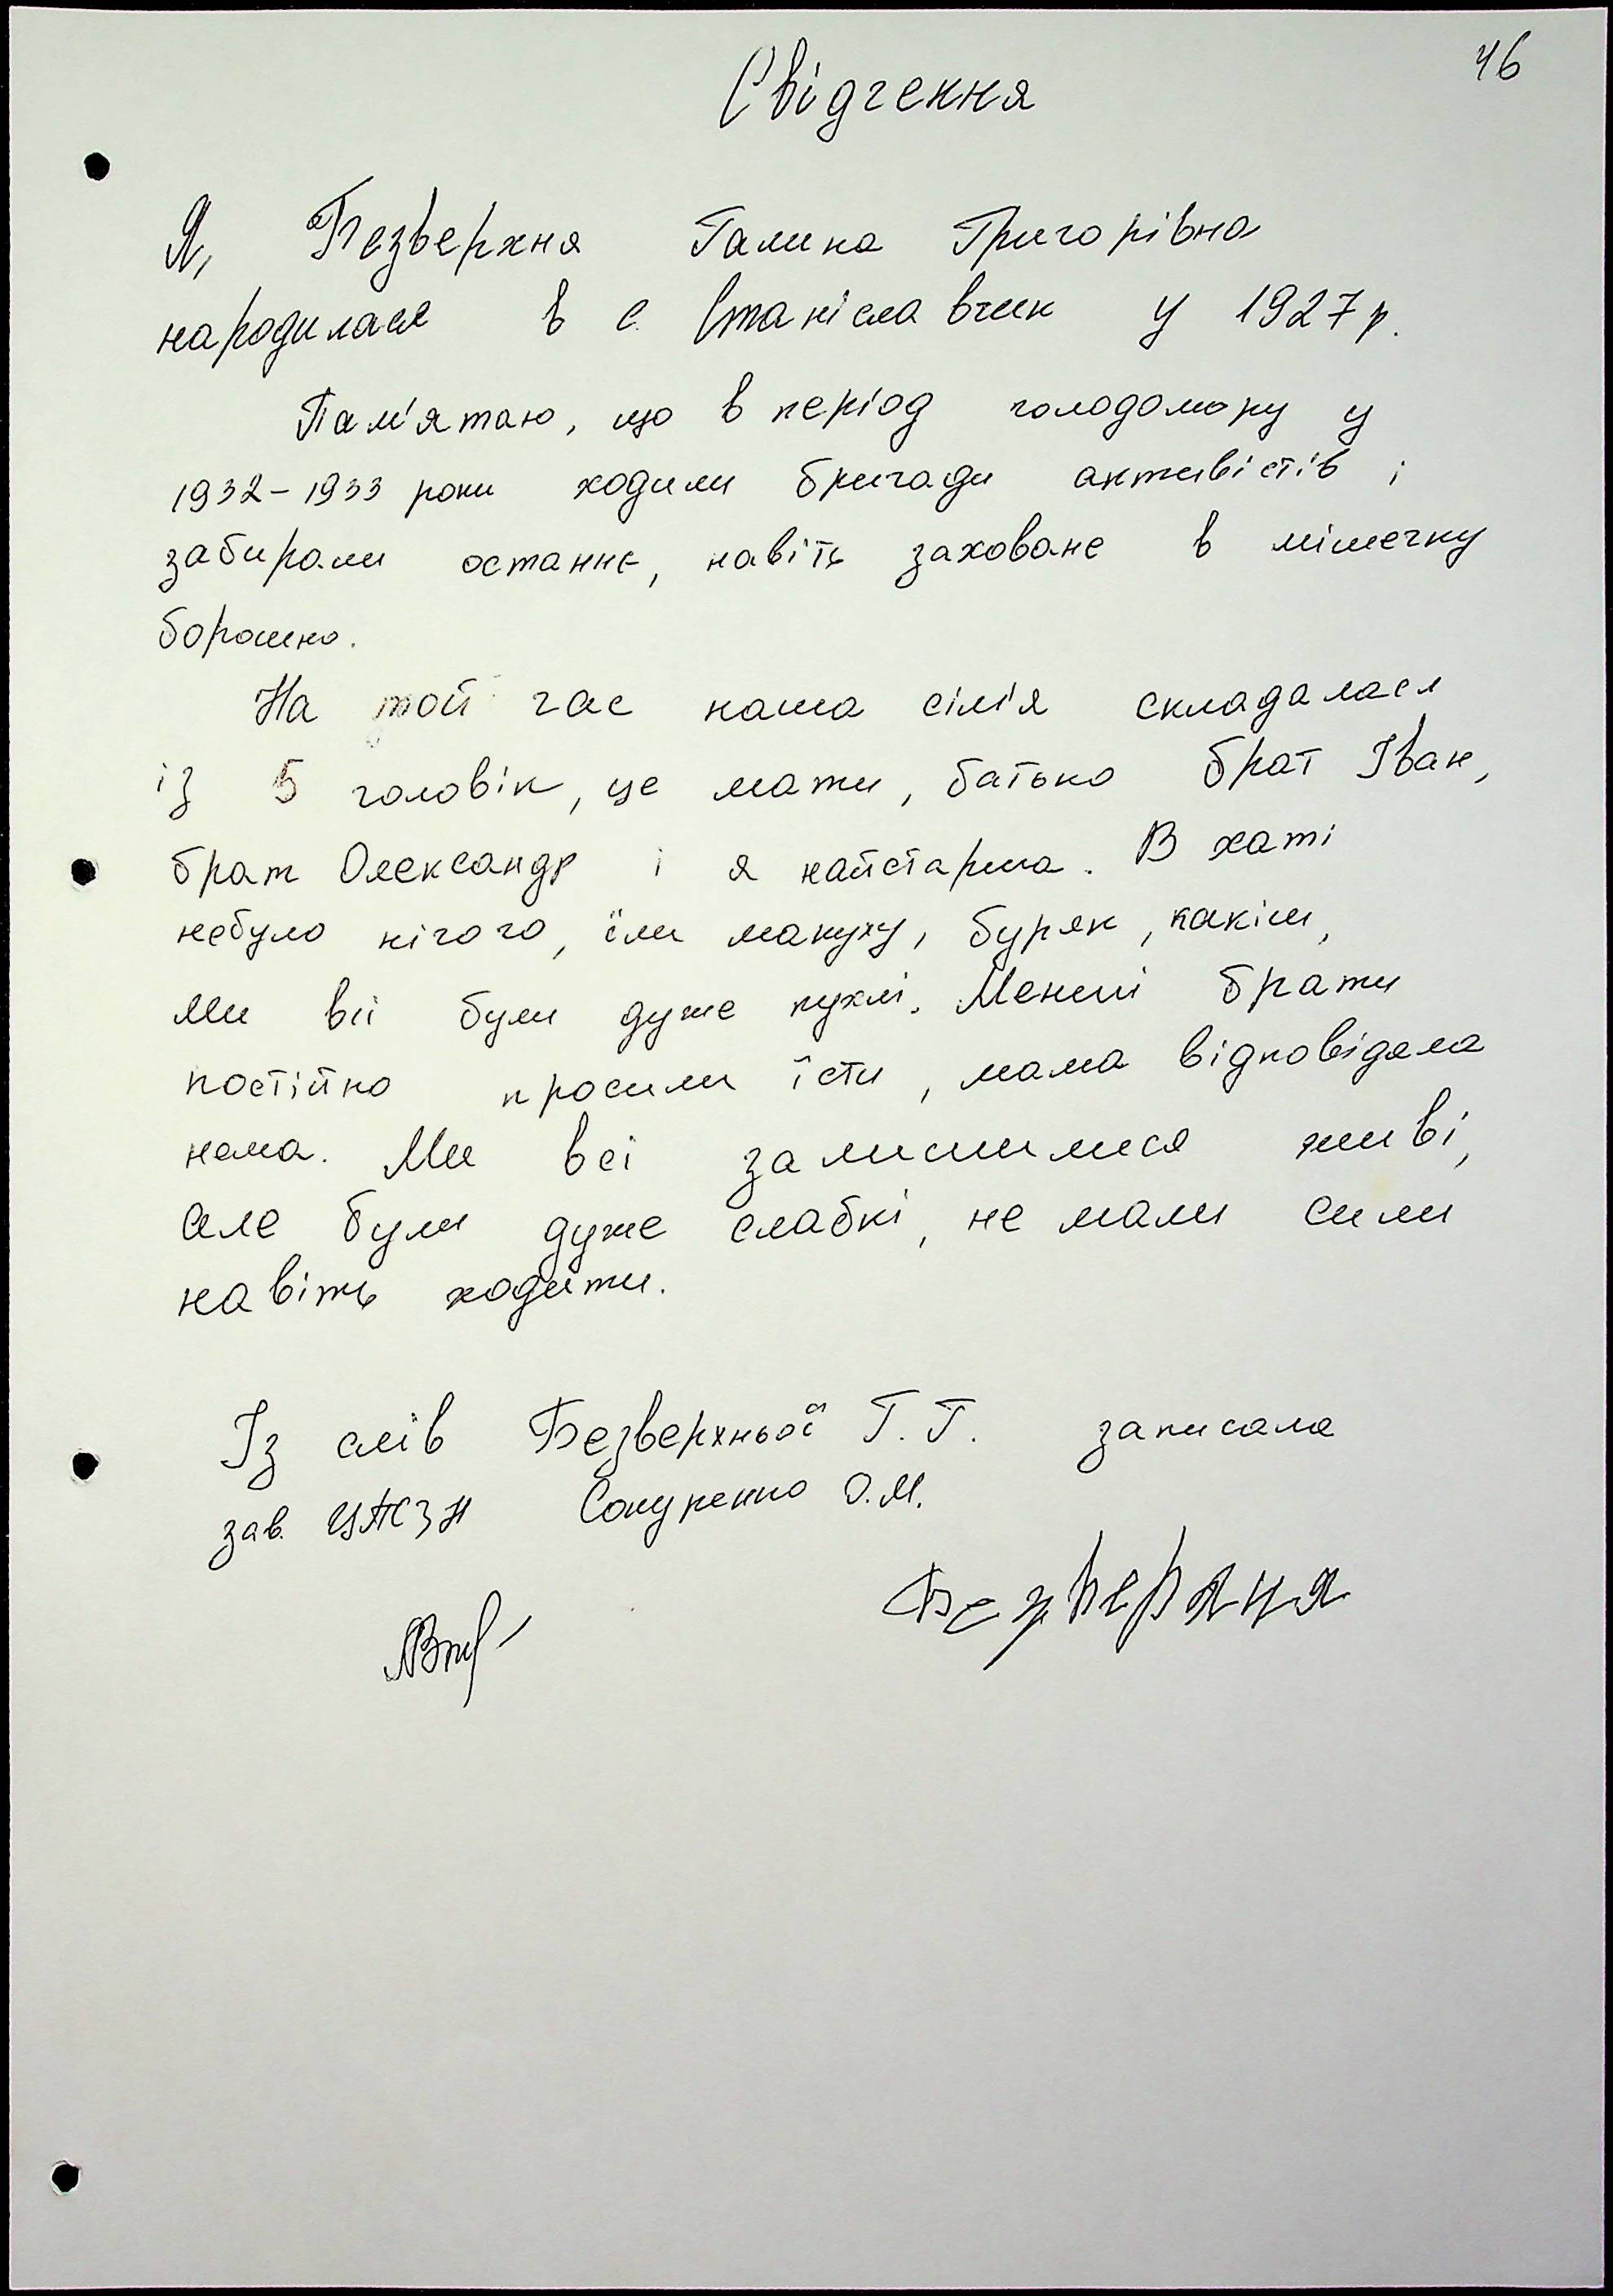 46
Свідчення
Я, Безверхня Галина Григорівна
народилася в с. Станіславчик у 1927 р.
Пам'ятаю, що в період голодомору у
1932-1933 роки ходили бригади активістів і
забирали останнє, навіть заховане в мішечку
борошно.
На той час наша сім'я складалася
із 5 чоловік, це мати, батько брат Іван,
брат Олександр і я найстарша. В хаті
небуло нічого, їли макуху, буряк, качан,
Ми всі були дуже пухлі. Менші брати
постійно просили їсти, мама відповідала
нема. Ми всі залишилися живі,
але були дуже слабкі, не мали сили
навіть ходити.
Із слів Безверхньої Г. Г. записала
зав. Сокуренко О.М.
Безверхня